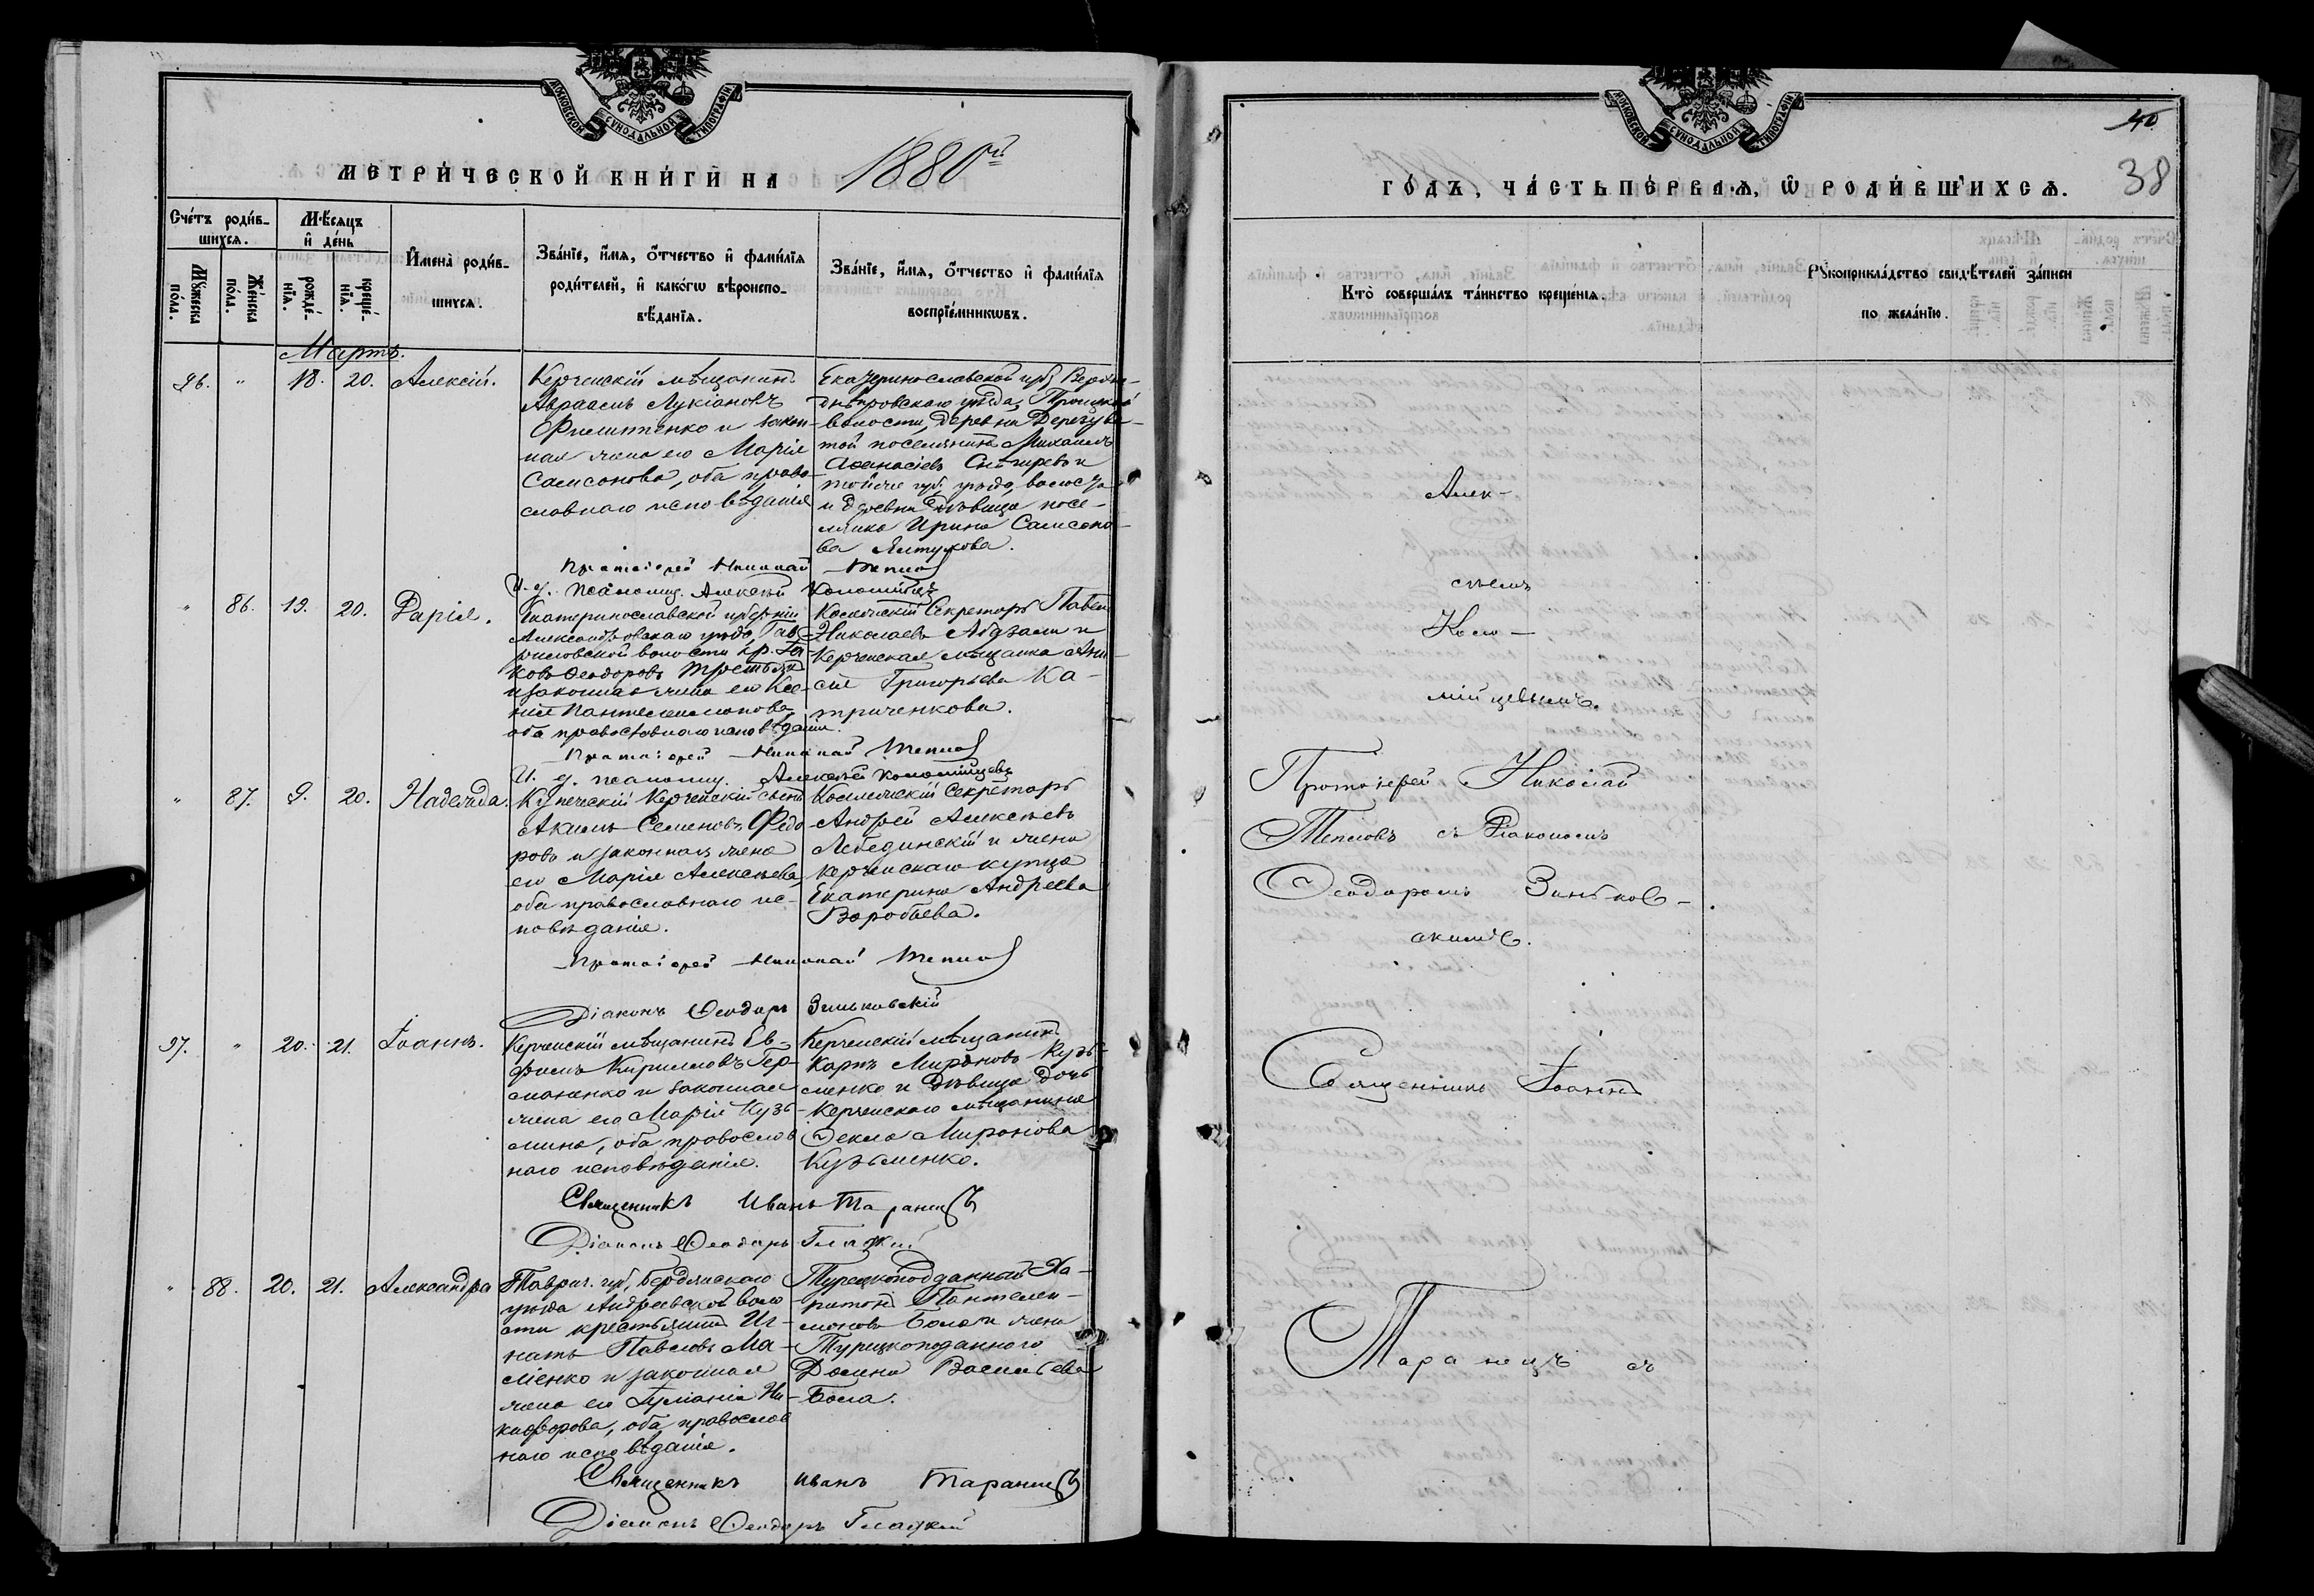 МОСКОВСКОЙ СѴНОДАЛЬНОЙ ТИПОГРАФІИ
МЕТРИ́ЧЕСКОЙ КНИ́ГИ НА 1880й
Сче́тъ роди́вшихся.
Мѣ́сяцъ и҆ де́нь
Мꙋ́жеска по́ла.
Же́нска по́ла.
рожде́нїѧ.
креще́нїѧ.
И҆мена̀ роди́вшихсѧ.
Зва́нїе, и҆́мѧ, ѻ҆́тчество и҆ фами́лїѧ
роди́телей, и҆ како́гѡ вѣроиспо-
вѣ́данїѧ.
Зва́нїе, и҆́мѧ, ѻ҆́тчество и҆ фами́лїѧ
воспрїе́мникѡвъ.
Мартъ.
96. " 18. 20. Алексій.
Керченскій мѣщанинъ
Авраамъ Лукіановъ
Филипенко и закон-
ная жена его Марія
Самсонова, оба право-
славнаго исповѣданія
Екатеринославской губ. Верхне-
днѣпровскаго уѣзда, Троицкой
волости, деревни
поселянинъ Михаилъ
Аѳанасіевъ Снигиревъ и
тойже губ. уѣзда, волости
и деревни дѣвица посе-
лянка Ирина Самсоно-
ва Алтухова.
Протоіерей Николай Тепловъ
И. д. псаломщ. Алексѣй Коломійцевъ
" 86. 19. 20. Дарія.
Екатеринославской губерніи
Александровскаго уѣзда, Гав-
риловской волости кр. Яковъ
Ѳеодоровъ
и законная жена его Ксе-
нія Пантелеимонова
оба православнаго исповѣданія.
Коллежскій Секретарь Павелъ
Николаевъ Абдзали и
Керченская мѣщанка Ани-
сія Григорьева Ка-
триченкова.
Протоіерей Николай Тепловъ
И. д. псаломщ. Алексѣй Коломійцевъ
" 87. 9. 20. Надежда.
Купеческій Керченскій сынъ
Акимъ Семеновъ Федо-
ровъ и законная жена
его Марія Алексѣева,
оба православнаго ис-
повѣданія.
Коллежскій Секретарь
Андрей Алексѣевъ
Лебединскій и жена
керченскаго купца
Екатерина Андреева
Воробьева.
Протоіерей Николай Тепловъ
Діаконъ Ѳеодоръ Зиньковскій
97. " 20. 21. Іоаннъ.
Керченскій мѣщанинъ Ев-
фимъ Кирилловъ Гер-
маненко и законная
жена его Марія Кузь-
мина, оба православ-
наго исповѣданія.
Керченскій мѣщанинъ
Карпъ Мироновъ Кузь-
менко и дѣвица дочь
Керченскаго мѣщанина
Ѳекла Миронова
Кузьменко.
Священникъ Иванъ Таранецъ
Діаконъ Ѳеодоръ Глаткій
" 88. 20. 21. Александра
Таврич. губ. Бердянскаго
уѣзда Андреевской воло-
сти крестьянинъ Иг-
натъ Павловъ Ма-
сленко и законная
жена его Іуліанія Ни-
кифорова, оба православ-
наго исповѣданія.
Турецкоподданный Ха-
ритонъ Пантелеи-
моновъ Бола и жена
Турецкоподданного
Домна Васильева
Бола.
Священникъ Иванъ Таранецъ
Діаконъ Ѳеодоръ Глаткій
МОСКОВСКОЙ СѴНОДАЛЬНОЙ ТИПОГРАФІИ
40
38
ГО́ДЪ, ЧА́СТЬ ПЕ́РВАѦ, Ѡ҆ РОДИ́ВШИХСѦ.
Кто̀ соверша́лъ та́инство креще́нїѧ.
Рꙋкоприкла́дство свидѣ́телей за́писи
по жела́нїю.
Алек-
сѣемъ
Коло-
мійцевымъ.
Протоіерей Николай
Тепловъ съ Діакономъ
Ѳеодоромъ Зиньков-
скимъ.
Священникъ Іоаннъ
Таранецъ съ